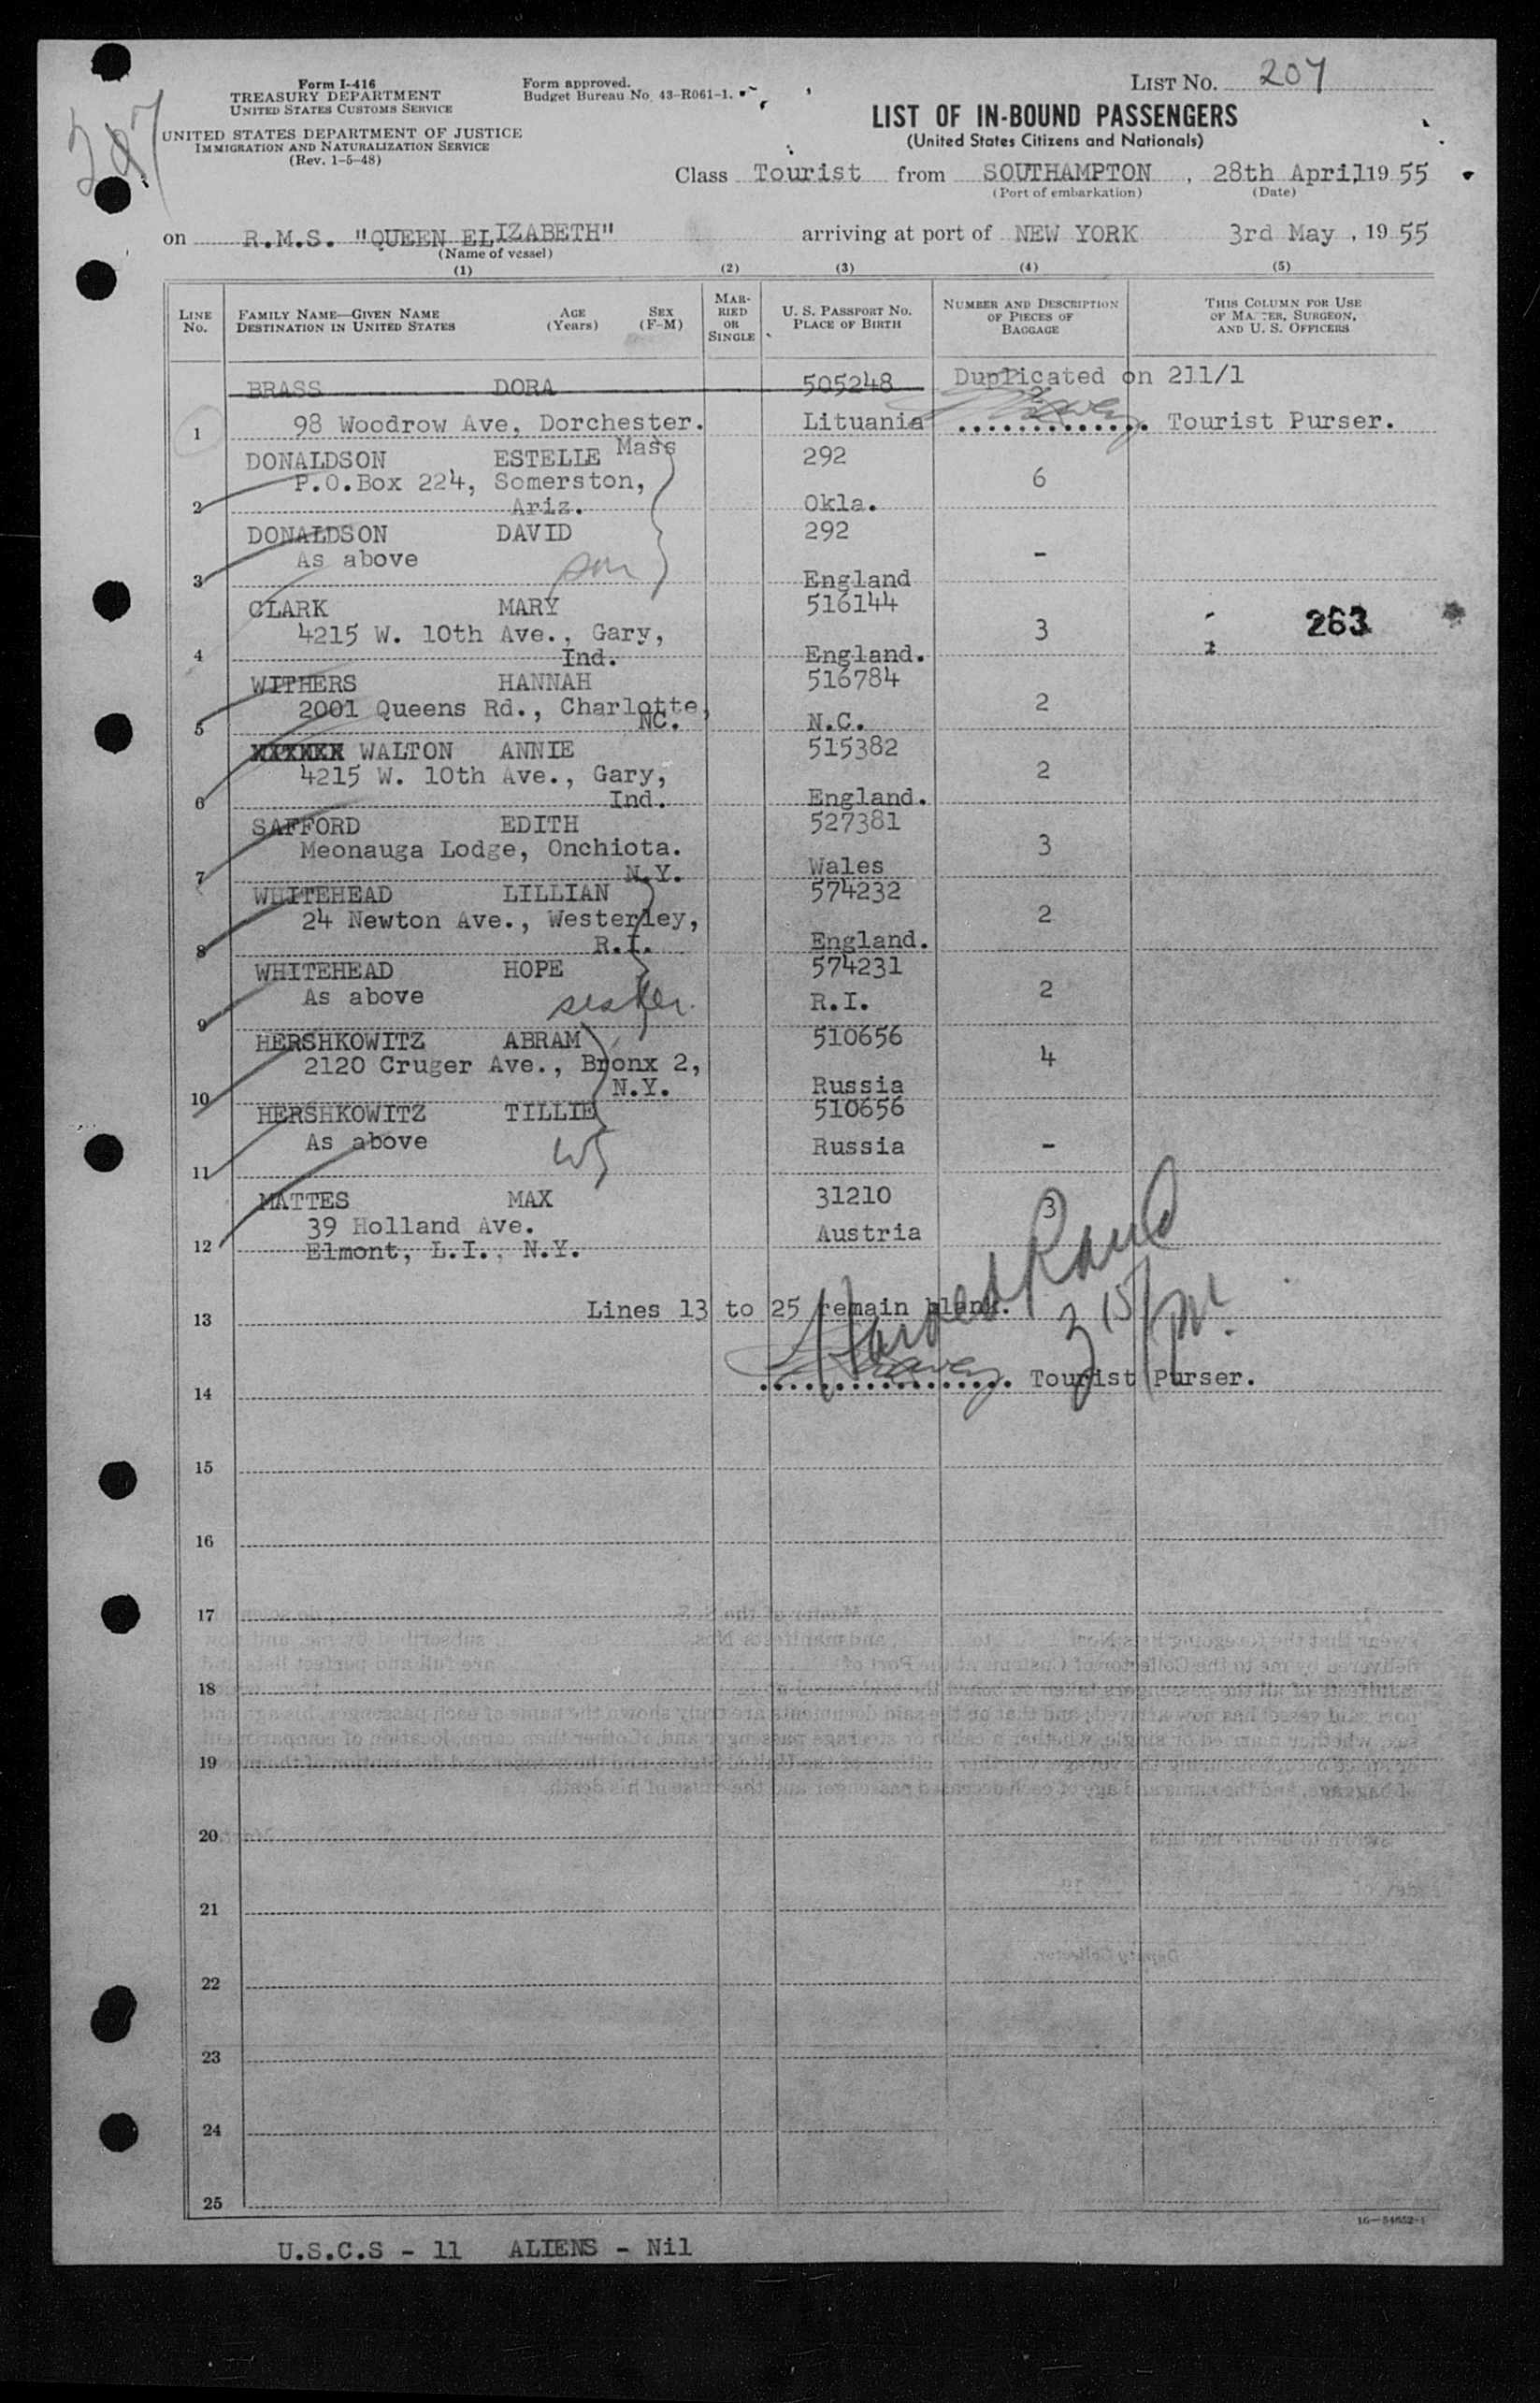 Form I-416
TREASURY DEPARTMENT
UNITED STATES CUSTOMS SERVICE
UNITED STATES DEPARTMENT OF JUSTICE
IMMIGRATION AND NATURALIZATION SERVICE
(Rev. 1-5-48)
Form approved.
Budget Bureau No. 43-R061-1.
LIST NO. 207
LIST OF IN-BOUND PASSENGERS
(United States Citizens and Nationals)
Class Tourist from SOUTHAMPTON , 28th April, 1955
(Port of embarkation) (Date)
on R.M.S. "QUEEN ELIZABETH" arriving at port of NEW YORK 3rd May , 1955
(Name of vessel)
(1) (2) (3) (4) (5)
LINE No. FAMILY NAME—GIVEN NAME DESTINATION IN UNITED STATES AGE (Years) SEX (F-M) MARRIED OR SINGLE U. S. PASSPORT NO. PLACE OF BIRTH NUMBER AND DESCRIPTION OF PIECES OF BAGGAGE THIS COLUMN FOR USE OF MASTER, SURGEON, AND U. S. OFFICERS
BRASS DORA 505248 Duplicated on 211/1
1 98 Woodrow Ave, Dorchester. Lituania Tourist Purser.
Mass
DONALDSON ESTELLE 292
P.O.Box 224, Somerston, 6
2 Ariz. Okla.
DONALDSON DAVID 292
As above son -
3 England
CLARK MARY 516144
4215 W. 10th Ave., Gary, 3 263
4 Ind. England.
WITHERS HANNAH 516784
2001 Queens Rd., Charlotte, 2
5 NC. N.C.
WALTON ANNIE 515382
4215 W. 10th Ave., Gary, 2
6 Ind. England.
SAFFORD EDITH 527381
Meonauga Lodge, Onchiota. 3
7 N.Y. Wales
WHITEHEAD LILLIAN 574232
24 Newton Ave., Westerley, 2
8 R.I. England.
WHITEHEAD HOPE 574231
As above sister R.I. 2
9
HERSHKOWITZ ABRAM 510656
2120 Cruger Ave., Bronx 2, 4
10 N.Y. Russia
HERSHKOWITZ TILLIE 510656
As above Russia -
11
MATTES MAX 31210 3
39 Holland Ave. Austria
12 Elmont, L.I., N.Y.
13 Lines 13 to 25 remain blank.
14 Tourist Purser.
15
16
17
18
19
20
21
22
23
24
25
16—54652-1
U.S.C.S - 11 ALIENS - Nil